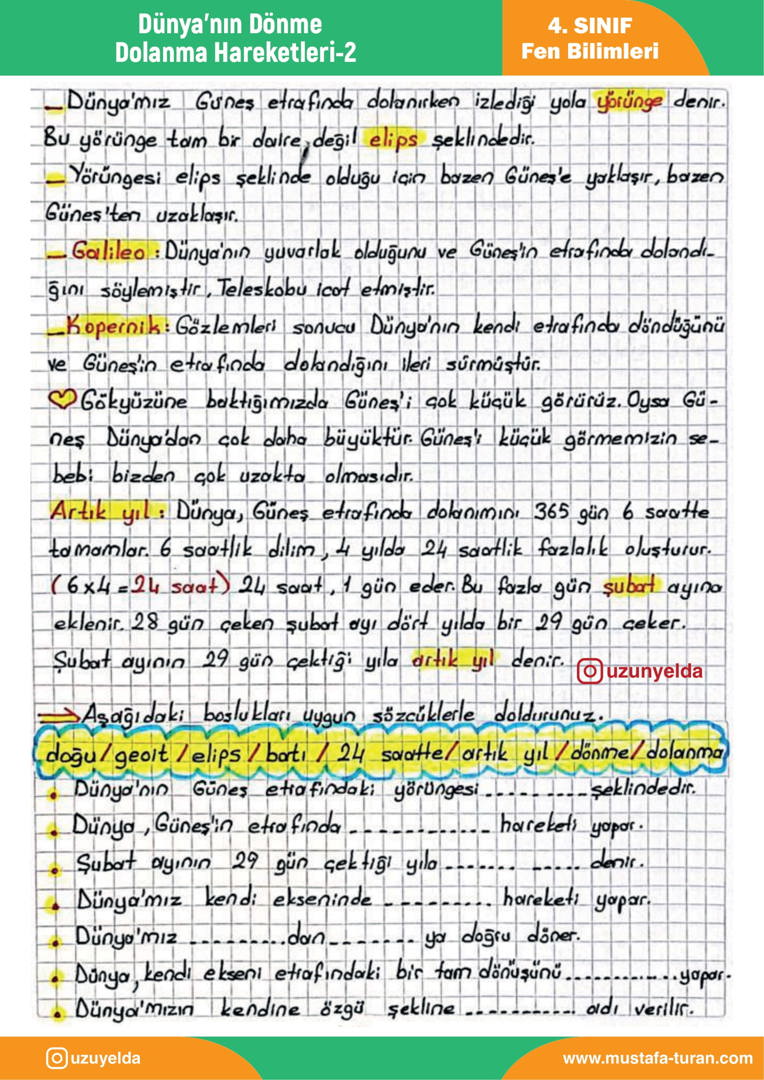 Dünya'nın Dönme
Dolanma Hareketleri-2
4. SINIF
Fen Bilimleri
– Dünya'mız Güneş etrafında dolanırken izlediği yola yörünge denir.
Bu yörünge tam bir daire değil elips şeklindedir.
– Yörüngesi elips şeklinde olduğu için bazen Güneş'e yaklaşır, bazen
Güneş'ten uzaklaşır.
– Galileo : Dünya'nın yuvarlak olduğunu ve Güneş'in etrafında dolandı-
ğını söylemiştir, Teleskobu icat etmiştir.
– Kopernik : Gözlemleri sonucu Dünya'nın kendi etrafında döndüğünü
ve Güneş'in etrafında dolandığını ileri sürmüştür.
♡ Gökyüzüne baktığımızda Güneş'i çok küçük görürüz. Oysa Gü-
neş Dünya'dan çok daha büyüktür. Güneş'i küçük görmemizin se-
bebi bizden çok uzakta olmasıdır.
Artık yıl : Dünya, Güneş etrafında dolanımını 365 gün 6 saatte
tamamlar. 6 saatlik dilim, 4 yılda 24 saatlik fazlalık oluşturur.
(6x4=24 saat) 24 saat, 1 gün eder. Bu fazla gün şubat ayına
eklenir. 28 gün çeken şubat ayı dört yılda bir 29 gün çeker.
Şubat ayının 29 gün çektiği yıla artık yıl denir.
uzunyelda
⇒ Aşağıdaki boşlukları uygun sözcüklerle doldurunuz.
doğu / geoit / elips / batı / 24 saatte / artık yıl / dönme / dolanma
• Dünya'nın Güneş etrafındaki yörüngesi .......... şeklindedir.
• Dünya, Güneş'in etrafında .......... hareketi yapar.
• Şubat ayının 29 gün çektiği yıla .......... denir.
• Dünya'mız kendi ekseninde .......... hareketi yapar.
• Dünya'mız ..........dan.......... ya doğru döner.
• Dünya, kendi ekseni etrafındaki bir tam dönüşünü ..........yapar.
• Dünya'mızın kendine özgü şekline .......... adı verilir.
uzuyelda
www.mustafa-turan.com